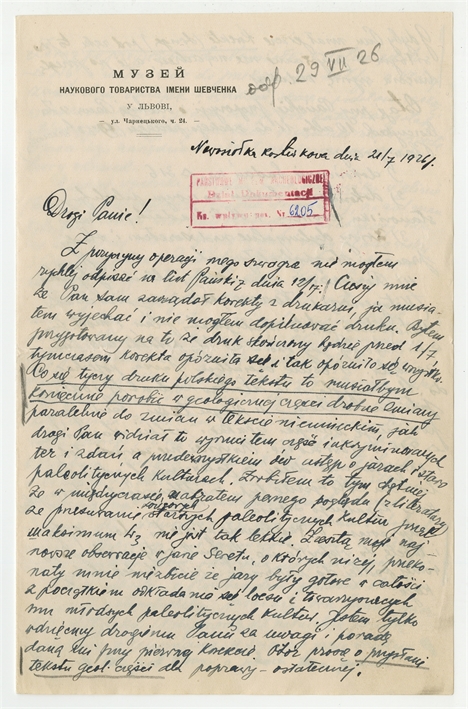 МУЗЕЙ
НАУКОВОГО ТОВАРИСТВА ІМЕНИ ШЕВЧЕНКА
У ЛЬВОВІ,
— ул. Чарнецького, ч. 24. —
odp. 29 VII 26
Nowosiółka kostiukowa dnia 21/7 1926 r.
Dział Dokumentacji
Nr 6205
Drogi Panie!
Z przyczyny operacji mego szwagra nie mogłem
rychlej odpisać na list Pański z dnia 12/7. Cieszy mnie
że Pan sam zażądał korekty z drukarni, ja musia-
łem wyjechać i nie mogłem dopilnować druku. Byłem
przygotowany na to że druk skończony będzie przed 1/7
tymczasem korekta opóźniła się i tak opóźniło się wszystko.
Co się tyczy druku polskiego tekstu to musiałbym
koniecznie porobić w geologicznej części drobne zmiany
paralelnie do zmian w tekscie niemieckim, jak
drogi Pan widział to wyrzuciłem część inkryminowanych
też i zdań a przedewszystkiem ów ustęp o jarach i staro
paleolitycznych kulturach. Zrobiłem to tym chętniej
że w międzyczasie nabrałem pewnego poglądu z literatury
że przesuwanie starszych paleolitycznych kultur przed
maksimum W2 nie jest tak lekkie. Zresztą moje naj-
nowsze obserwacje w jarze Seretu, o których niżej, przeko-
nały mnie niezbicie że jary były gotowe w całości
z początkiem odkładania się loessu i towarzyszących
mu młodszych paleolitycznych kultur. Jestem tylko
wdzięczny drogiemu Panu za uwagi i poradę
daną mi przy pierwszej korekcie. Otóż proszę o przysłanie
tekstu geol. części dla poprawy - ostatecznej.